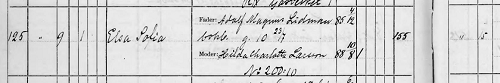 125 " 9 1 Elsa Sofia
Fader: Adolf Magnus Lidman 85 11/12
g. 10 23/7
Moder: Hilda Charlotta Larson 88 10/8 1
155 " 5
No 200:10